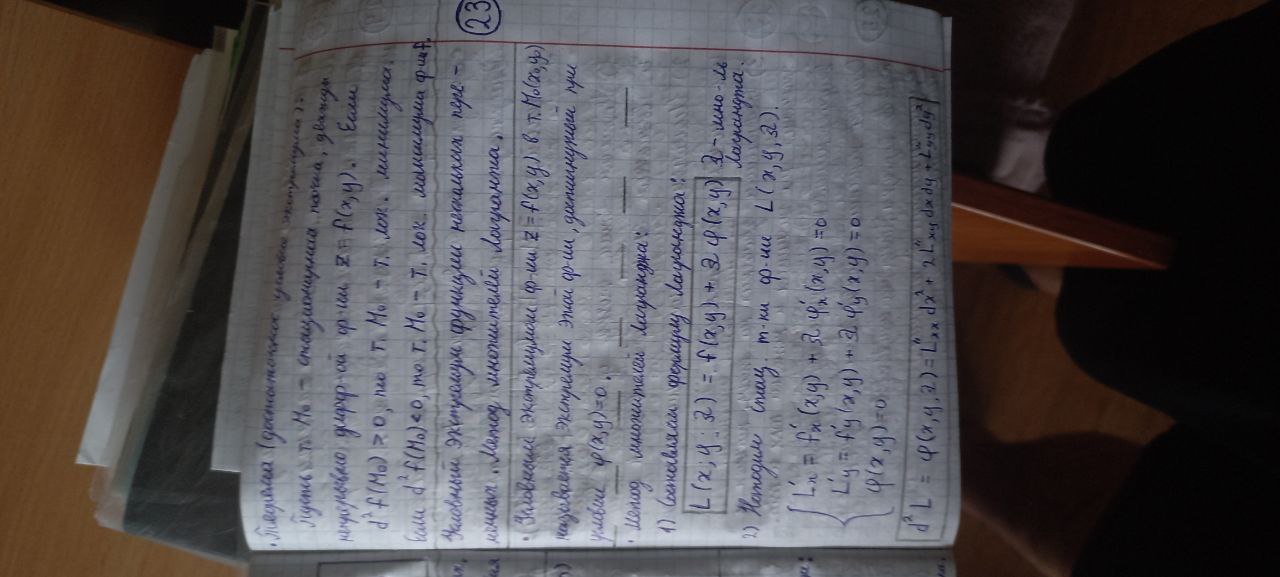 23
• Теорема (достаточное условие экстремума):
Пусть т. M₀ – стационарная точка, дважды
диф-ой ф-ии z = f(x,y). Если
d²f(M₀) > 0, то т. M₀ – т. лок. минимума.
Если d²f(M₀) < 0, то т. M₀ – т. лок. максимума ф-ии f.
Условный экстремум функции нескольких пере-
менных. Метод множителей Лагранжа.
• Условным экстремумом ф-ии z = f(x,y) в т. M₀(x₀,y₀)
называется экстремум этой ф-ии, достигнутый при
условие φ(x,y)=0.
• Метод множителей Лагранжа:
1) Составляем формулу Лагранжа:
L(x, y, λ) = f(x,y) + λ φ(x,y) λ – мно-ль
Лагранжа.
2) Находим стац. т-ки ф-ии L(x, y, λ).
L'x = f'x(x,y) + λ φ'x(x,y) = 0
L'y = f'y(x,y) + λ φ'y(x,y) = 0
φ(x,y) = 0
d²L = φ(x, y, λ) = L''xx dx² + 2L''xy dx dy + L''yy dy²